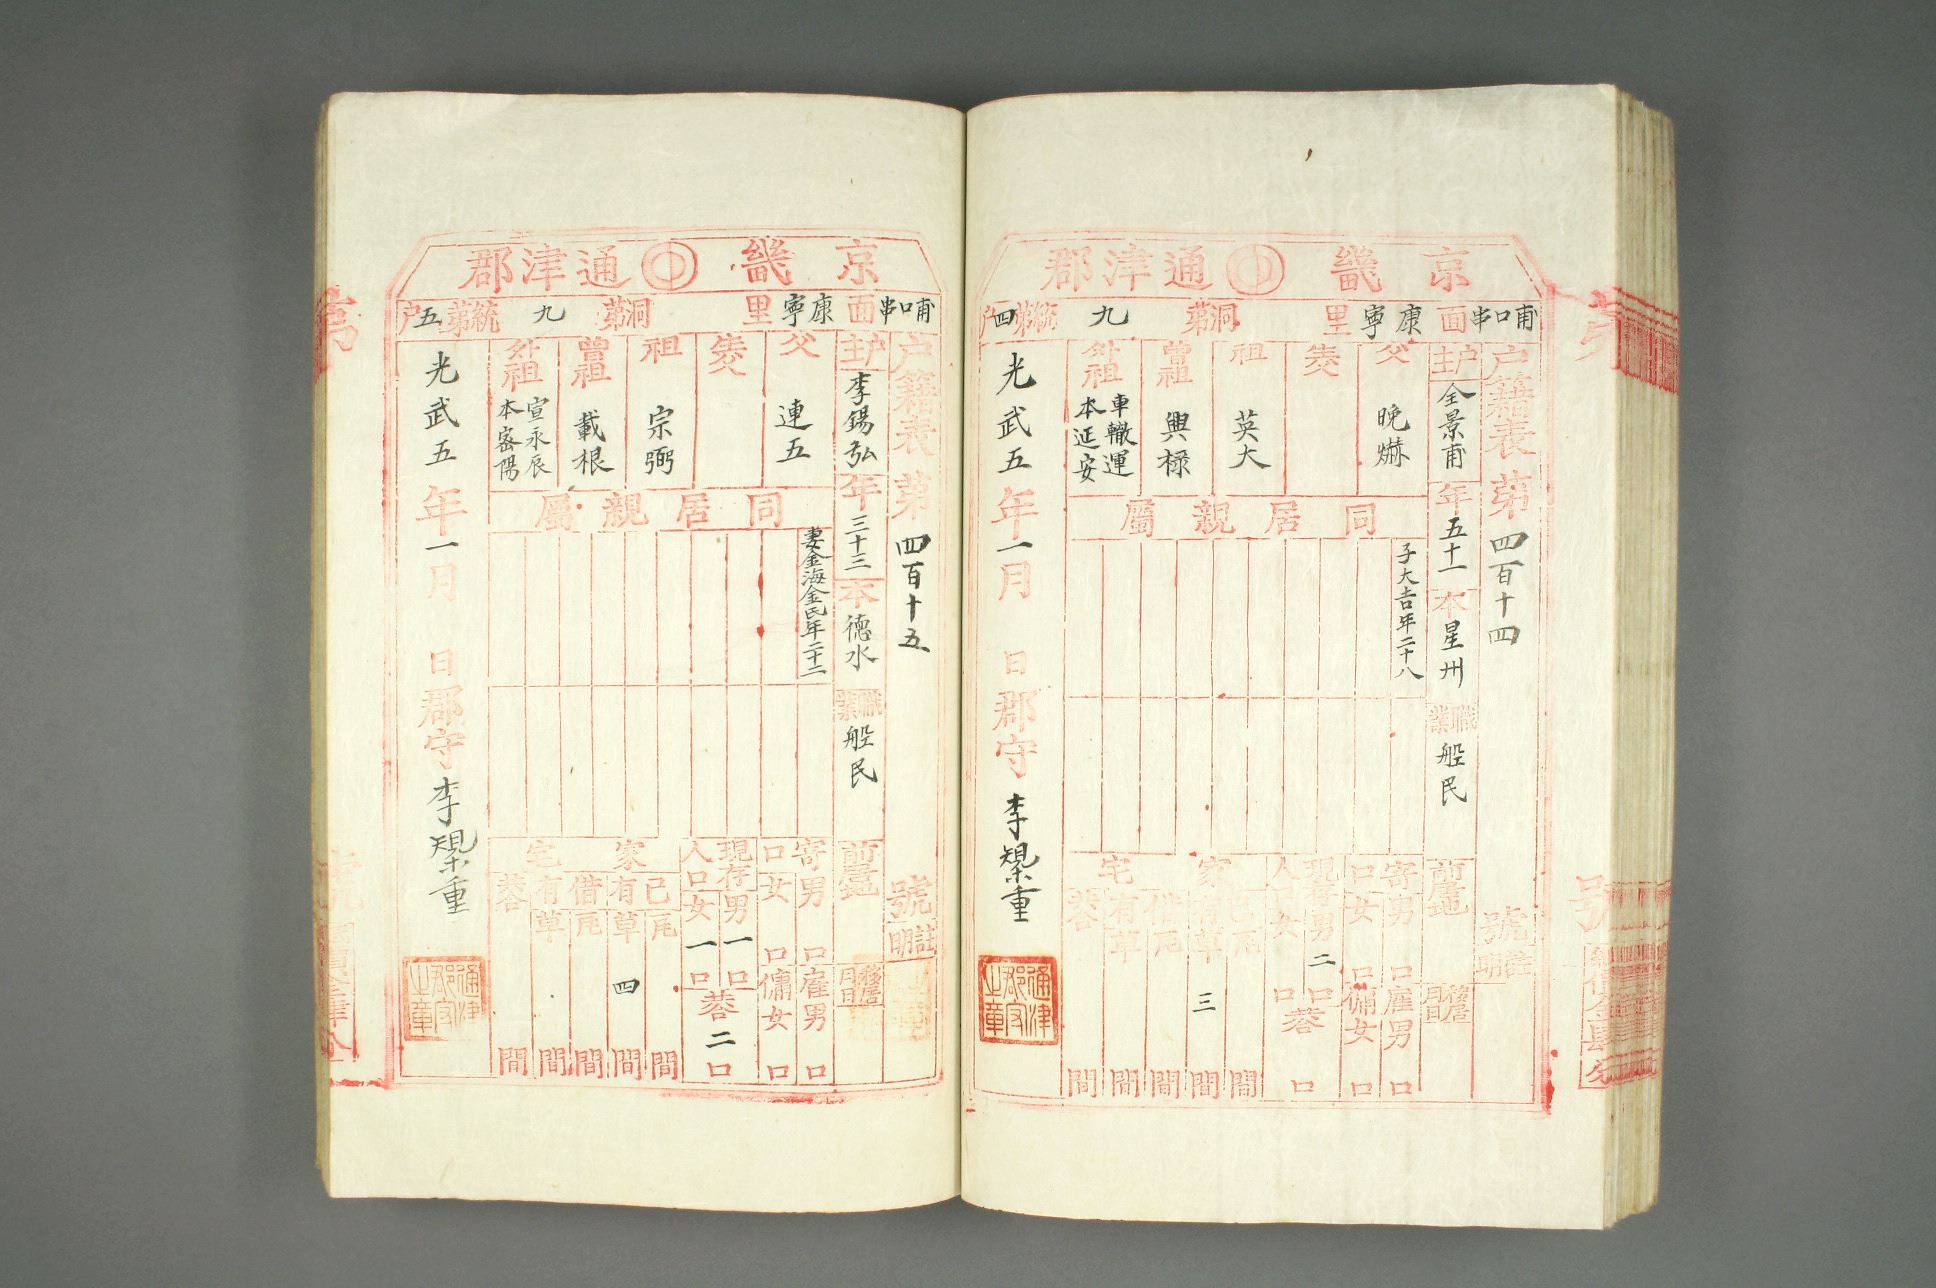 京畿 通津郡
甫口串面 康寧里 洞第 九 統第 四 户
户籍表 第 四百十四 號
註明
户主 全景甫 年 五十一 本 星州 職業 船民 前居地
移居月日
父 晩爀
生父
祖 英大
曾祖 興祿
外祖 車轍運
本延安
同居親屬
子大吉年二十八
寄口 男 口 女 口
雇男 口 傭女 口
現存人口 男 二 口 女 口 共 口
家宅 己有 瓦 間 草 三 間
借有 瓦 間 草 間
共 間
光武 五 年 一 月 日 郡守 李槼重
通津郡守之章
第 號
京畿 通津郡
甫口串面 康寧里 洞第 九 統第 五 户
户籍表 第 四百十五 號
註明
户主 李錫弘 年 三十三 本 德水 職業 船民 前居地
移居月日
父 連五
生父
祖 宗弼
曾祖 載根
外祖 宣永辰
本密陽
同居親屬
妻金海金氏年二十二
寄口 男 口 女 口
雇男 口 傭女 口
現存人口 男 一 口 女 一 口 共 二 口
家宅 己有 瓦 間 草 四 間
借有 瓦 間 草 間
共 間
光武 五 年 一 月 日 郡守 李槼重
通津郡守之章